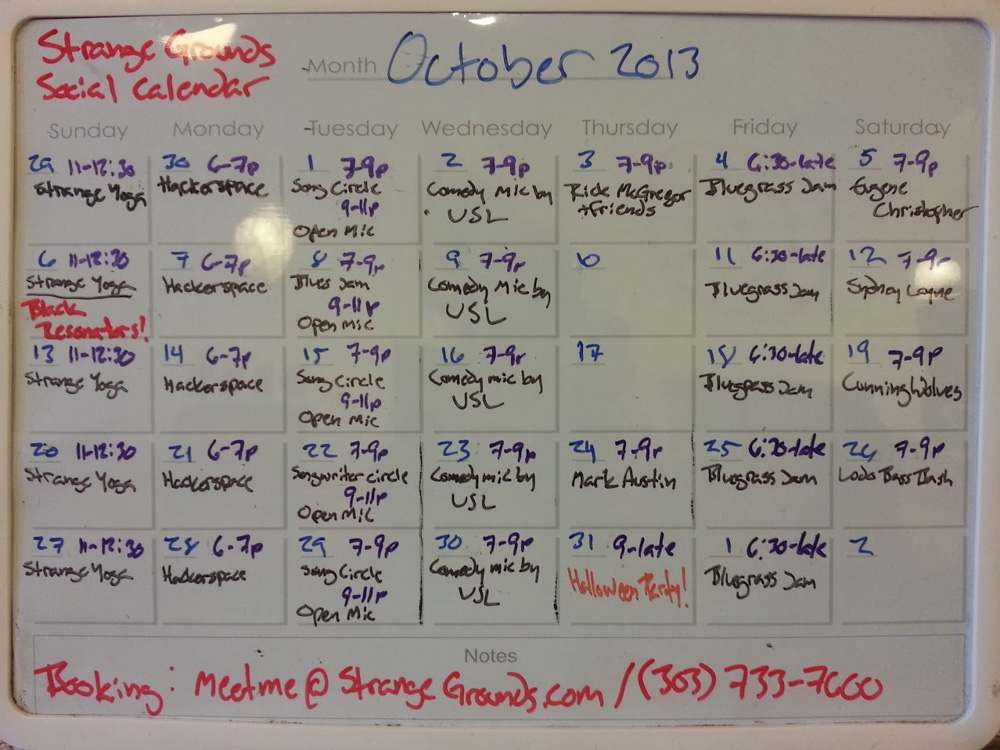 Strange Grounds
Social Calendar
Month October 2013
Sunday Monday Tuesday Wednesday Thursday Friday Saturday
29 11-12:30
Strange Yoga
30 6-7p
Hackerspace
1 7-9p
Song Circle
9-11p
Open Mic
2 7-9p
Comedy Mic by
USL
3 7-9p
Rick McGregor
+Friends
4 6:30-late
Bluegrass Jam
5 7-9p
Eugene
Christopher
6 11-12:30
Strange Yoga
Black
Resonators!
7 6-7p
Hackerspace
8 7-9p
Blues Jam
9-11p
Open Mic
9 7-9p
Comedy Mic by
USL
10
11 6:30-late
Bluegrass Jam
12 7-9p
Sydney Layne
13 11-12:30
Strange Yoga
14 6-7p
Hackerspace
15 7-9p
Song Circle
9-11p
Open Mic
16 7-9p
Comedy mic by
USL
17
18 6:30-late
Bluegrass Jam
19 7-9p
Cunning Wolves
20 11-12:30
Strange Yoga
21 6-7p
Hackerspace
22 7-9p
Songwriter circle
9-11p
Open Mic
23 7-9p
Comedy mic by
USL
24 7-9p
Mark Austin
25 6:30-late
Bluegrass Jam
26 7-9p
LoDo Bass Bash
27 11-12:30
Strange Yoga
28 6-7p
Hackerspace
29 7-9p
Song Circle
9-11p
Open Mic
30 7-9p
Comedy mic by
USL
31 9-late
Halloween Party!
1 6:30-late
Bluegrass Jam
2
Notes
Booking: Meetme@StrangeGrounds.com / (303) 733-7000